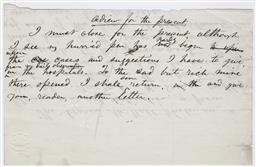 adieu for the present.
I must close for the present, although
I see my hurried pen has hardly begun
upon
the cases and suggestions I have to give
from my daily observation
in the hospitals. To the sad but rich mine
soon
there opened I shall return, & and give
you, reader, another letter.